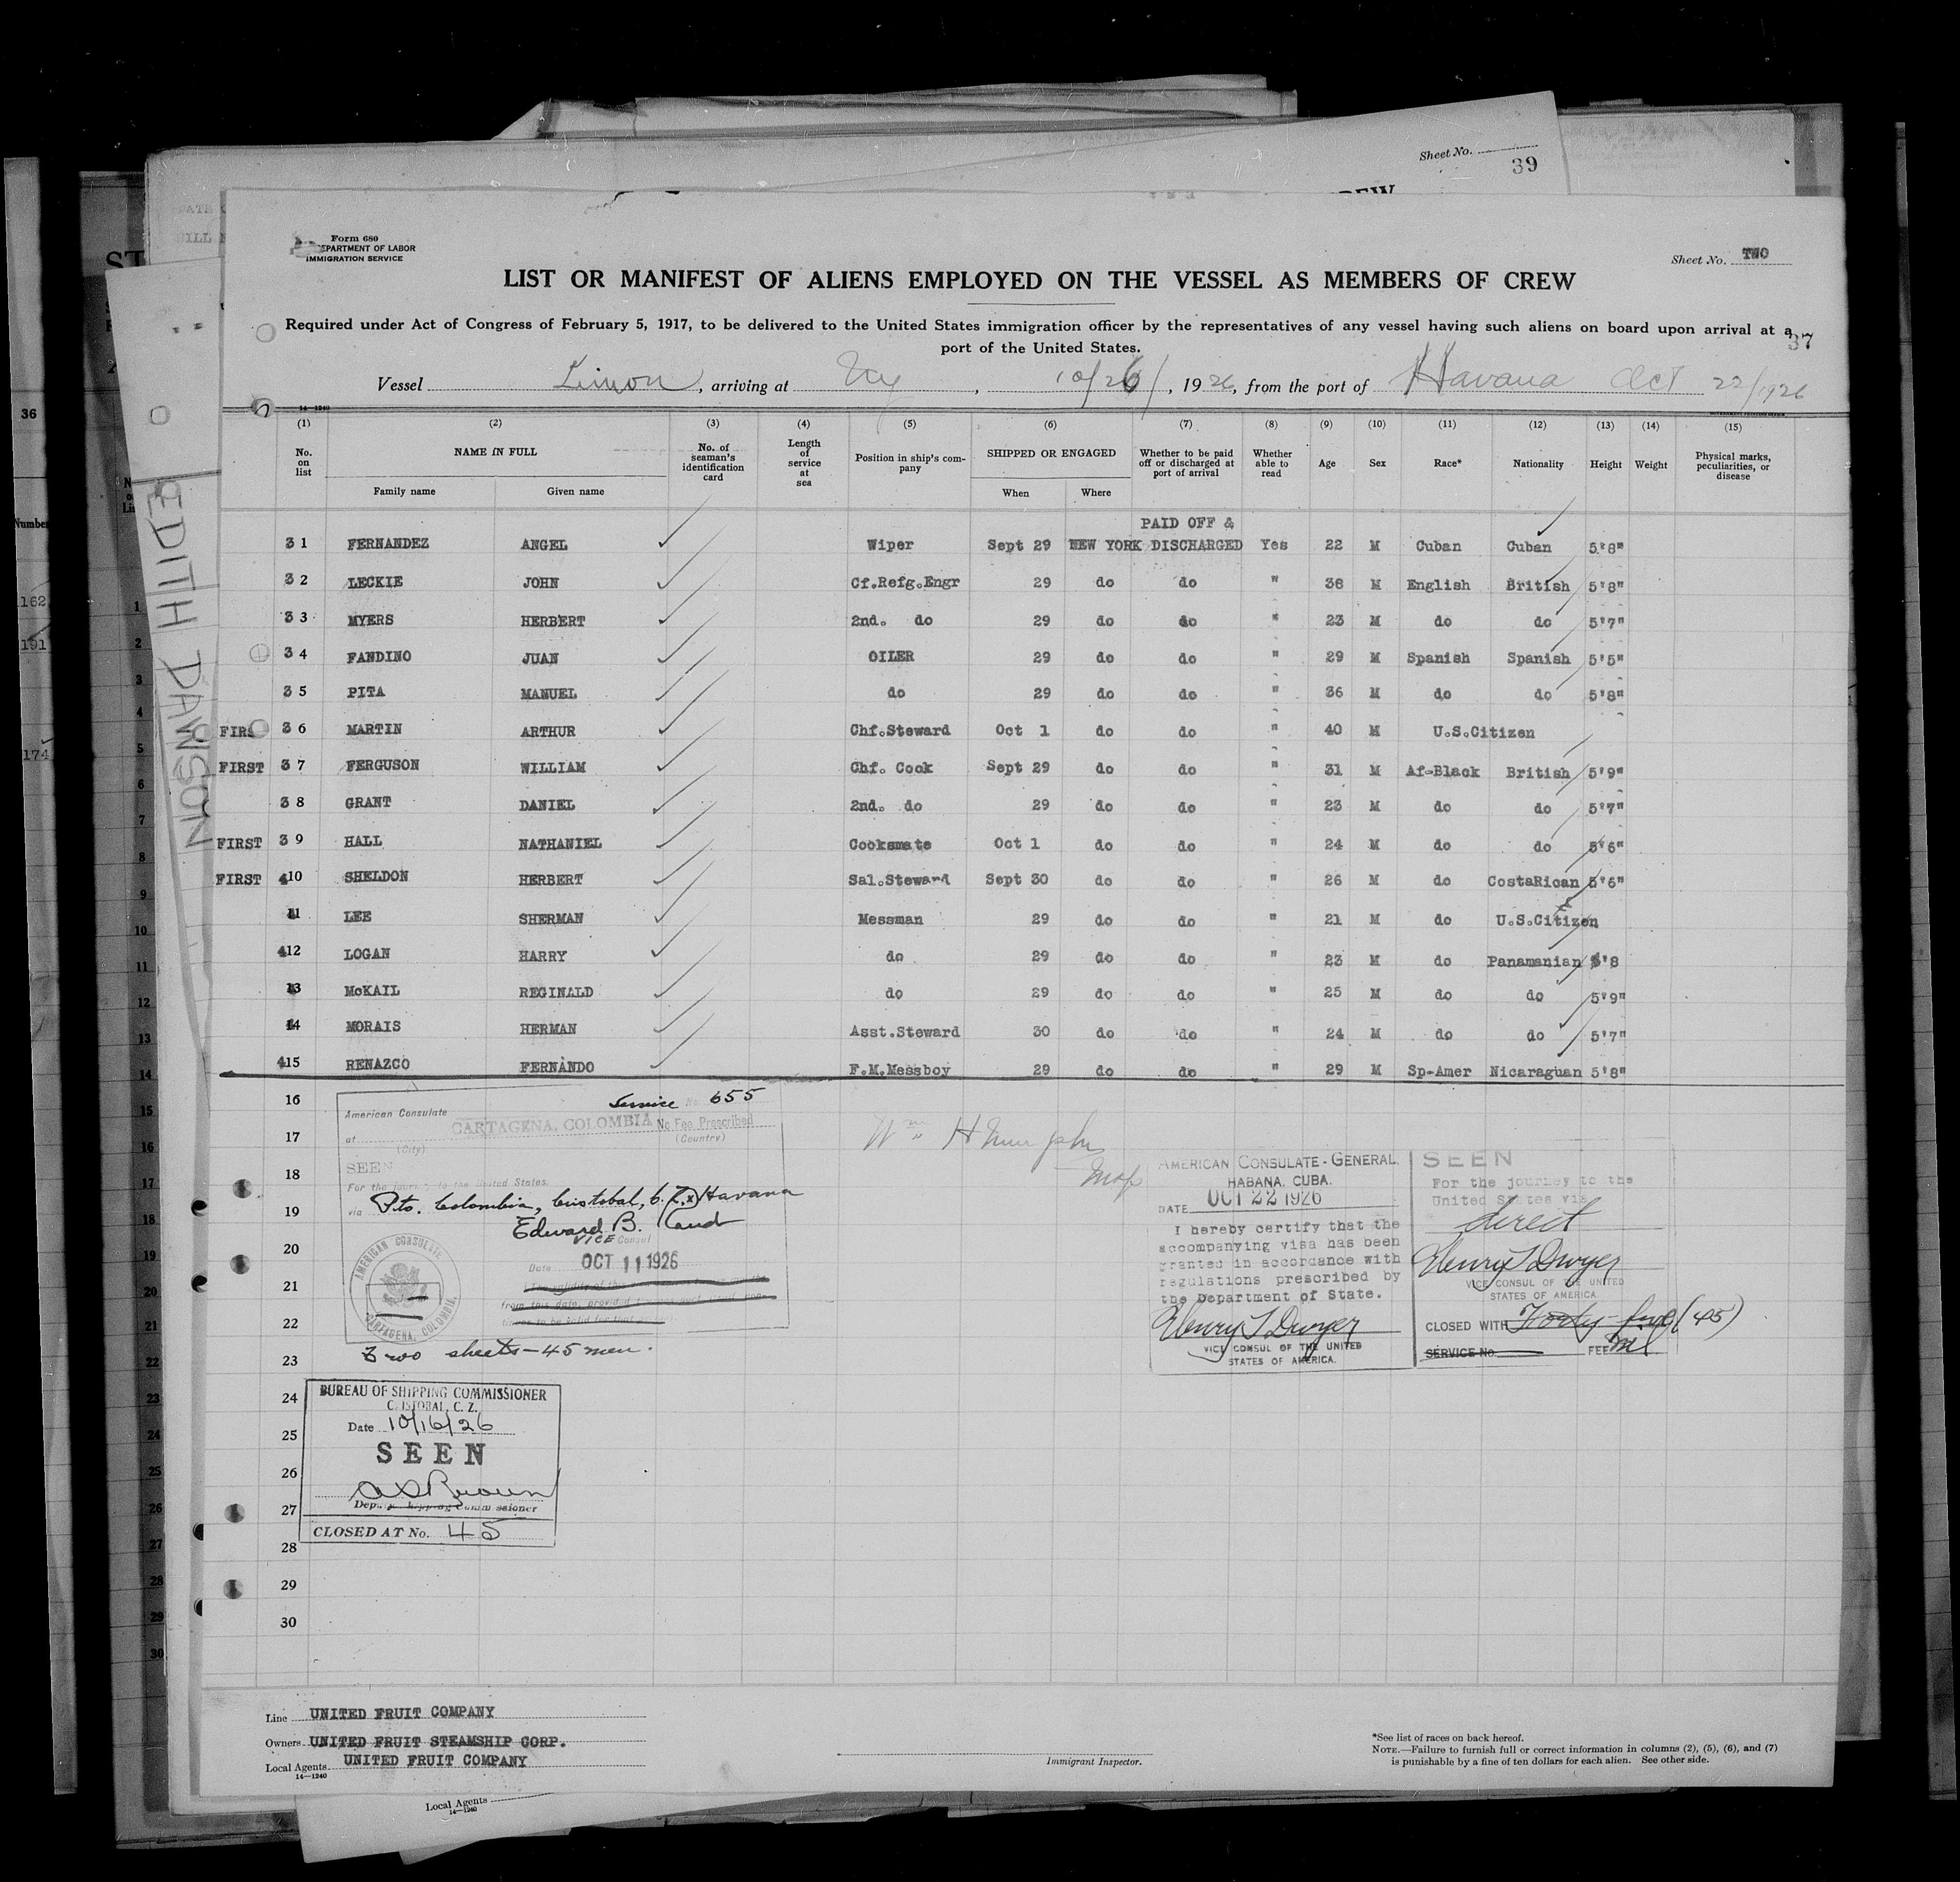 Sheet No.
39
Form 680
DEPARTMENT OF LABOR
IMMIGRATION SERVICE
Sheet No. TWO
LIST OR MANIFEST OF ALIENS EMPLOYED ON THE VESSEL AS MEMBERS OF CREW
Required under Act of Congress of February 5, 1917, to be delivered to the United States immigration officer by the representatives of any vessel having such aliens on board upon arrival at a
port of the United States.
37
Vessel Limon, arriving at Ny, 10/26/, 1926, from the port of Havana Oct 22/1926
14-1240
(1) (2) (3) (4) (5) (6) (7) (8) (9) (10) (11) (12) (13) (14) (15)
No. on list NAME IN FULL No. of seaman's identification card Length of service at sea Position in ship's company SHIPPED OR ENGAGED Whether to be paid off or discharged at port of arrival Whether able to read Age Sex Race* Nationality Height Weight Physical marks, peculiarities, or disease
Family name Given name When Where
PAID OFF &
31 FERNANDEZ ANGEL Wiper Sept 29 NEW YORK DISCHARGED Yes 22 M Cuban Cuban 5'8"
32 LECKIE JOHN Cf.Refg.Engr 29 do do " 38 M English British 5'8"
33 MYERS HERBERT 2nd. do 29 do do " 23 M do do 5'7"
34 FANDINO JUAN OILER 29 do do " 29 M Spanish Spanish 5'5"
35 PITA MANUEL do 29 do do " 36 M do do 5'8"
FIRS 36 MARTIN ARTHUR Chf.Steward Oct 1 do do " 40 M U.S.Citizen
FIRST 37 FERGUSON WILLIAM Chf. Cook Sept 29 do do " 31 M Af-Black British 5'9"
38 GRANT DANIEL 2nd. do 29 do do " 23 M do do 5'7"
FIRST 39 HALL NATHANIEL Cooksmate Oct 1 do do " 24 M do do 5'6"
FIRST 410 SHELDON HERBERT Sal.Steward Sept 30 do do " 26 M do CostaRican 5'6"
41 LEE SHERMAN Messman 29 do do " 21 M do U.S.Citizen
412 LOGAN HARRY do 29 do do " 23 M do Panamanian 5'8
13 McKAIL REGINALD do 29 do do " 25 M do do 5'9"
14 MORAIS HERMAN Asst.Steward 30 do do " 24 M do do 5'7"
415 RENAZCO FERNANDO F.M.Messboy 29 do do " 29 M Sp-Amer Nicaraguan 5'8"
16
17
18
19
20
21
22
23
24
25
26
27
28
29
30
American Consulate
Service No. 655
at CARTAGENA, COLOMBIA No Fee Prescribed
(City) (Country)
SEEN
For the journey to the United States.
via Pto. Colombia, Cristobal, C.Z. Havana
Edward B. Rand
VICE Consul
Date OCT 11 1926
AMERICAN CONSULATE
CARTAGENA, COLOMBIA.
Two sheets - 45 men.
Wm Humphr
AMERICAN CONSULATE-GENERAL.
HABANA. CUBA.
DATE OCT 22 1926
I hereby certify that the
accompanying visa has been
granted in accordance with
regulations prescribed by
the Department of State.
Henry T Dwyer
VICE CONSUL OF THE UNITED
STATES OF AMERICA.
SEEN
For the journey to the
United States via
direct
Henry T Dwyer
VICE CONSUL OF THE UNITED
STATES OF AMERICA
CLOSED WITH Forty five (45)
SERVICE No. FEE
BUREAU OF SHIPPING COMMISSIONER
CRISTOBAL, C. Z.
Date 10/16/26
SEEN
Deputy Shipping Commissioner
CLOSED AT No. 45
Line UNITED FRUIT COMPANY
Owners UNITED FRUIT STEAMSHIP CORP.
Local Agents UNITED FRUIT COMPANY
14-1240
Immigrant Inspector.
*See list of races on back hereof.
NOTE.—Failure to furnish full or correct information in columns (2), (5), (6), and (7)
is punishable by a fine of ten dollars for each alien. See other side.
EDITH DAWSON
36
Number
162
191
174
Local Agents
14-1240